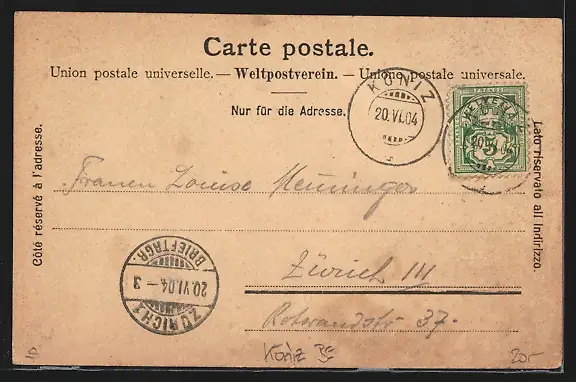 Carte postale.
Union postale universelle. — Weltpostverein. — Unione postale universale.
Nur für die Adresse.
KÖNIZ
20.VI.04
5
Côté réservé à l'adresse.
Lato riservato all' indirizzo.
Frauen Louise Henninger
Zürich III
Rotwandstr 37.
ZÜRICH 1
20.VI.04 – 3
BRIEFTRGR.
Köniz BE
20.-